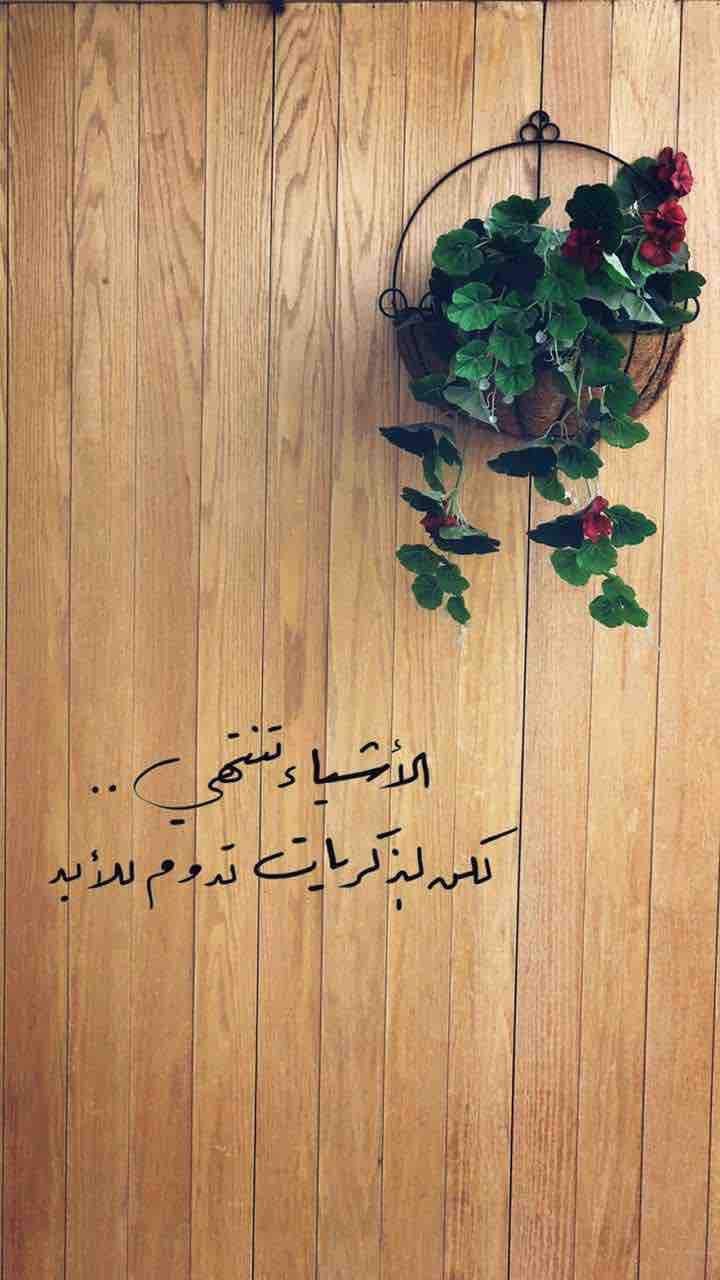 الأشياء تنتهي ..
لكن الذكريات تدوم للأبد